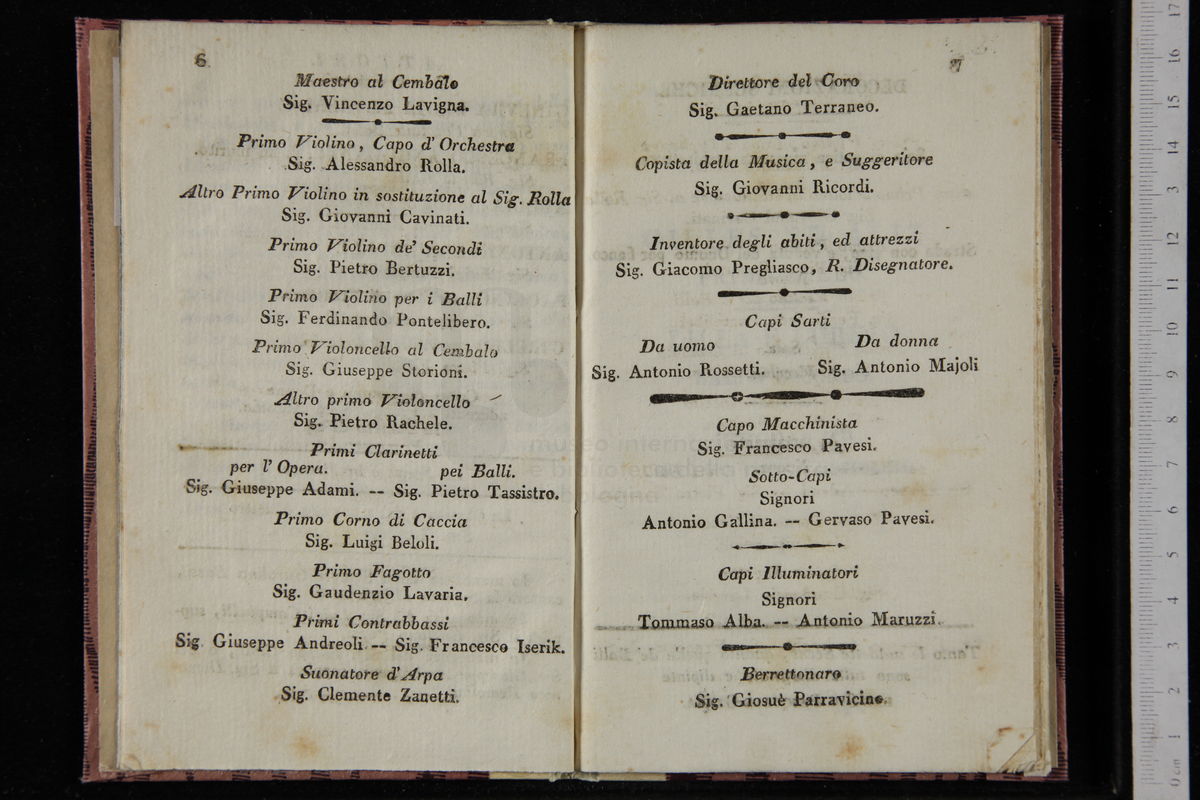 6
Maestro al Cembalo
Sig. Vincenzo Lavigna.
Primo Violino, Capo d' Orchestra
Sig. Alessandro Rolla.
Altro Primo Violino in sostituzione al Sig. Rolla
Sig. Giovanni Cavinati.
Primo Violino de' Secondi
Sig. Pietro Bertuzzi.
Primo Violino per i Balli
Sig. Ferdinando Pontelibero.
Primo Violoncello al Cembalo
Sig. Giuseppe Storioni.
Altro primo Violoncello
Sig. Pietro Rachele.
Primi Clarinetti
per l' Opera. pei Balli.
Sig. Giuseppe Adami. -- Sig. Pietro Tassistro.
Primo Corno di Caccia
Sig. Luigi Beloli.
Primo Fagotto
Sig. Gaudenzio Lavaria.
Primi Contrabbassi
Sig. Giuseppe Andreoli -- Sig. Francesco Iserik.
Suonatore d' Arpa
Sig. Clemente Zanetti.
7
Direttore del Coro
Sig. Gaetano Terraneo.
Copista della Musica, e Suggeritore
Sig. Giovanni Ricordi.
Inventore degli abiti, ed attrezzi
Sig. Giacomo Pregliasco, R. Disegnatore.
Capi Sarti
Da uomo Da donna
Sig. Antonio Rossetti. Sig. Antonio Majoli
Capo Macchinista
Sig. Francesco Pavesi.
Sotto-Capi
Signori
Antonio Gallina. -- Gervaso Pavesi.
Capi Illuminatori
Signori
Tommaso Alba. -- Antonio Maruzzi.
Berrettonaro
Sig. Giosuè Parravicino.
museo
e biblioteca della musica
bologna
0 cm 1 2 3 4 5 6 7 8 9 10 11 12 13 14 15 16 17